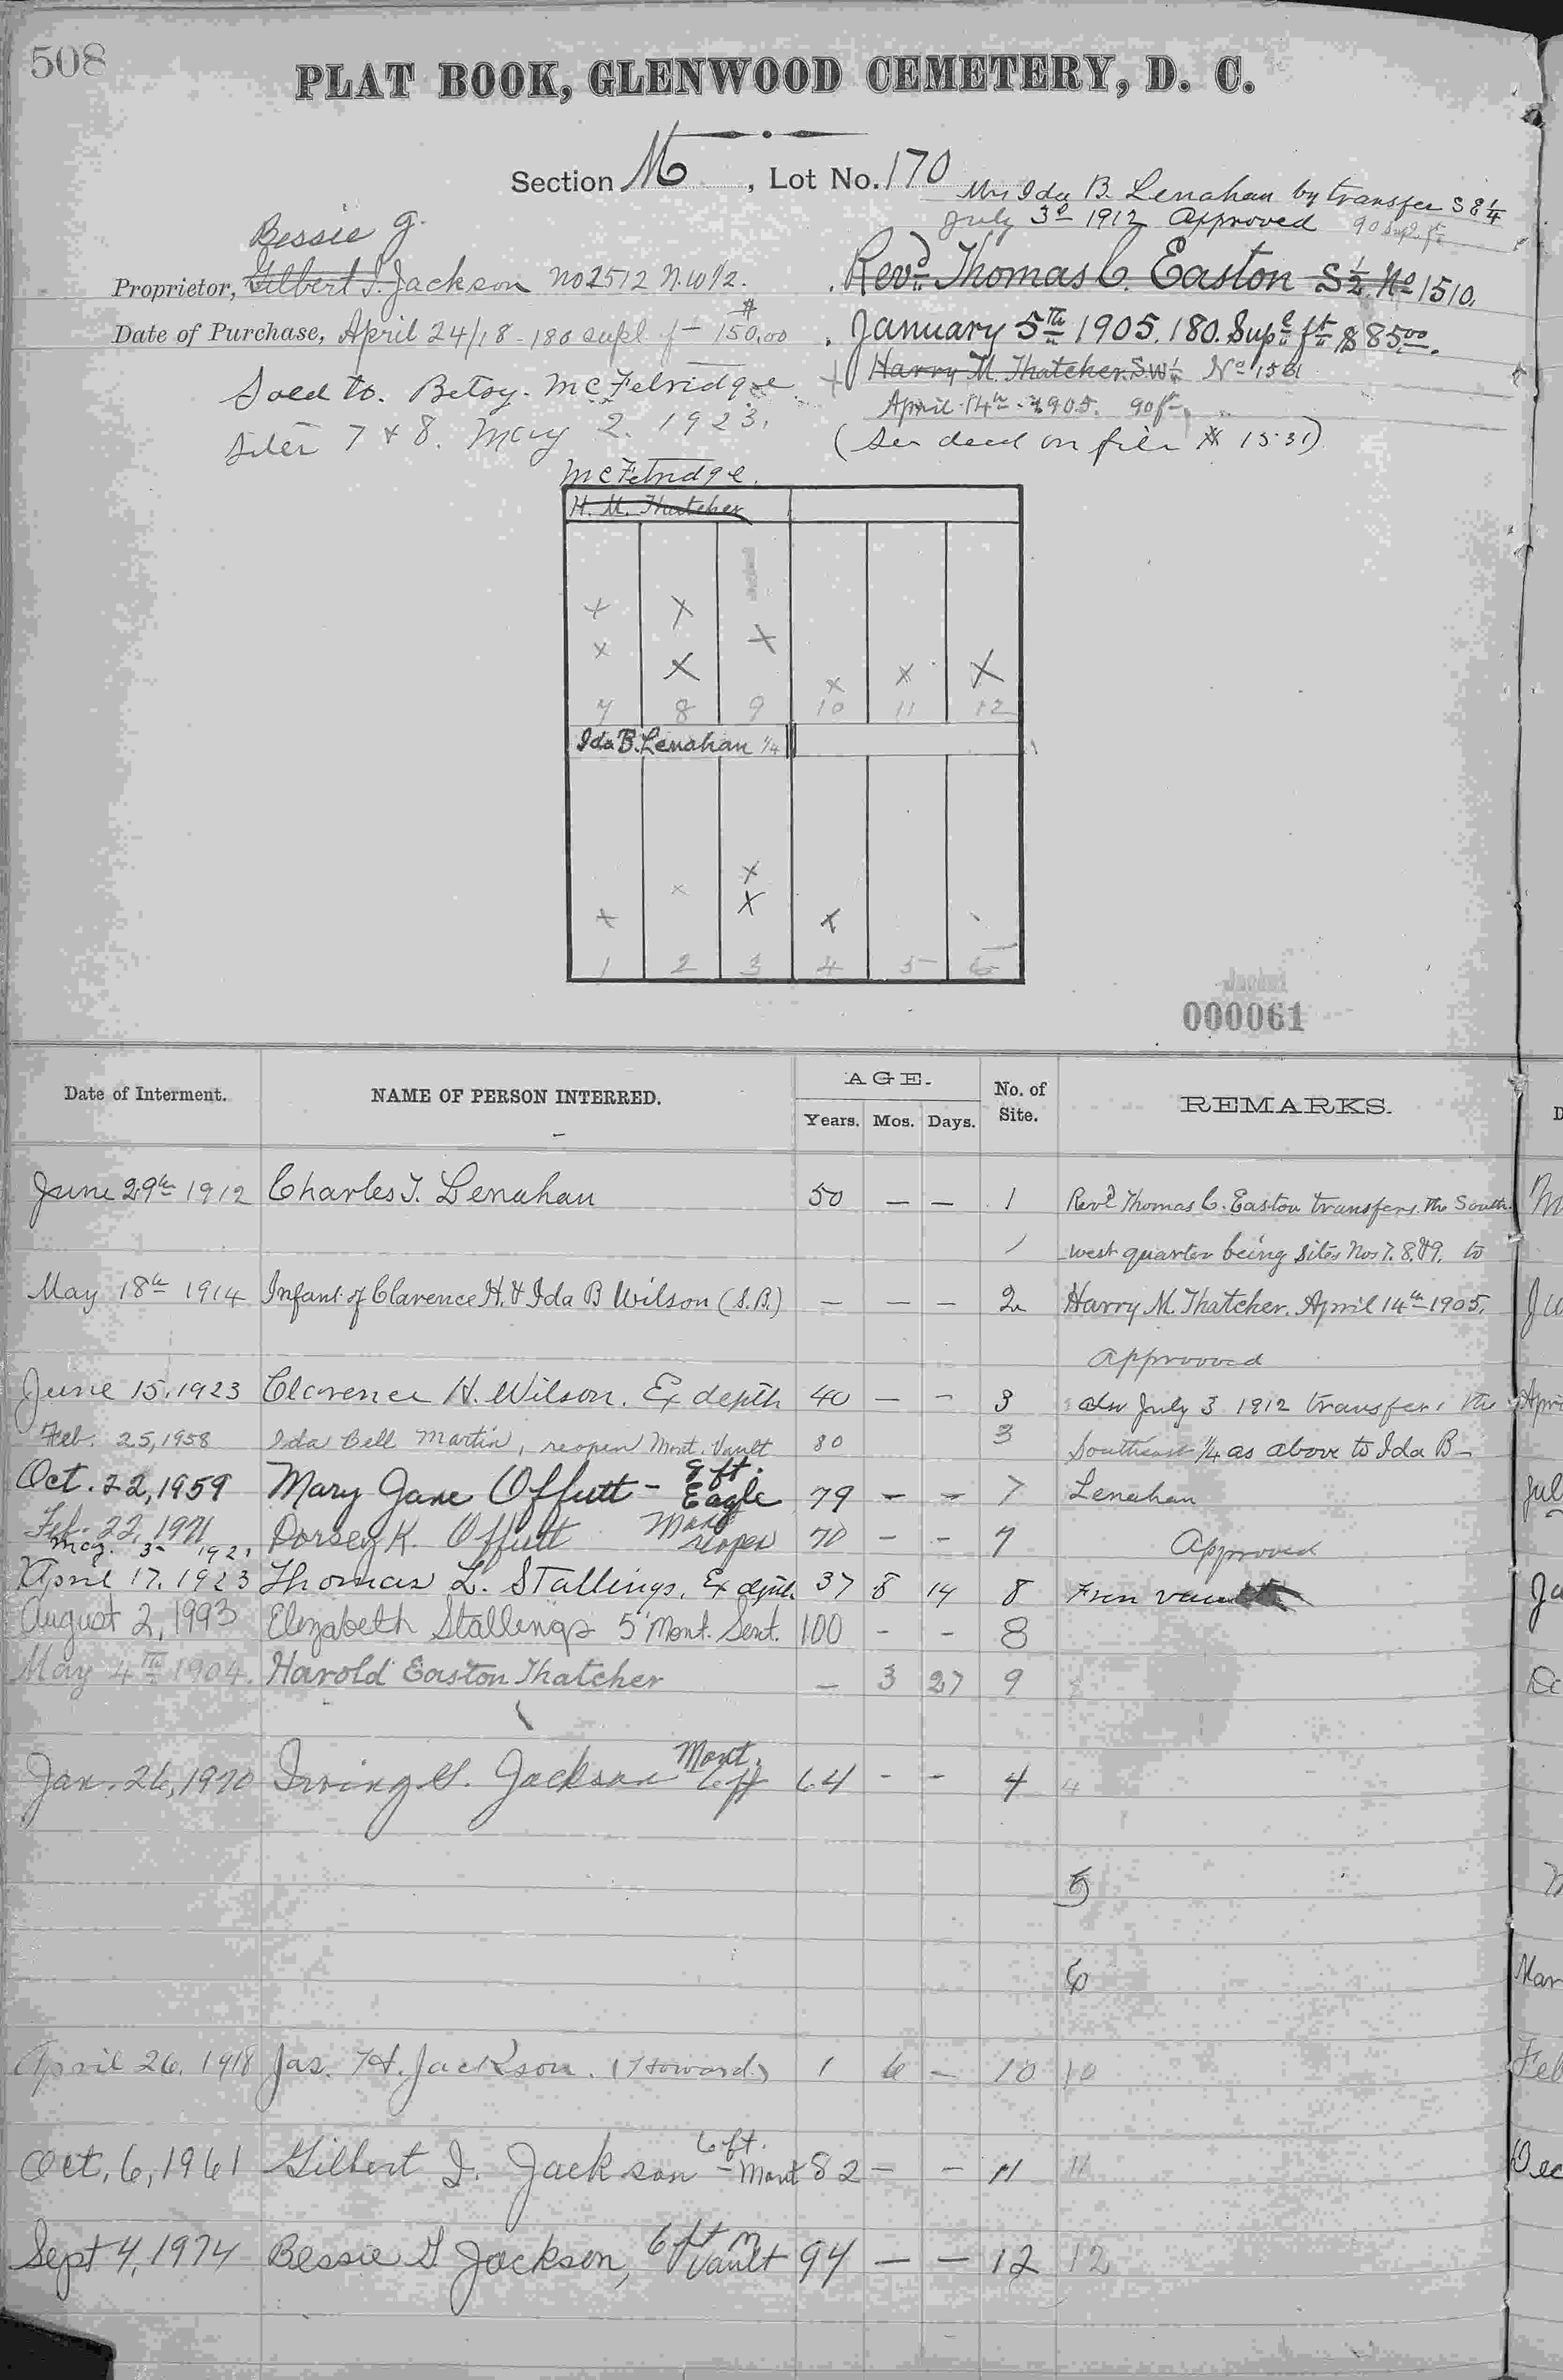 508
PLAT BOOK, GLENWOOD CEMETERY, D. C.
Section M, Lot No. 170
Mrs Ida B. Lenahan by transfer S E 1/4
July 3d 1912 Approved 90 Supl. ft.
Bessie G.
Proprietor, Gilbert I. Jackson No 2512 N.W 1/2.
Revd. Thomas C. Easton S 1/2 No 1510.
Date of Purchase, April 24/18 - 180 supl ft $150.00
January 5th 1905. 180. Supl ft $85 00.
Harry M. Thatcher. SW 1/4 No 1531
Sold to. Betsy. McFelridge
April 14th 1905. 90 ft
Sites 7 & 8. May 2. 1923.
(See deed on file # 1531)
McFelridge.
H. M. Thatcher
7 8 9 10 11 12
Ida B. Lenahan 1/4
1 2 3 4 5 6
000061
Date of Interment. NAME OF PERSON INTERRED. AGE. No. of Site. REMARKS.
Years. Mos. Days.
June 29th 1912 Charles T. Lenahan 50 — — 1 Revd Thomas C. Easton transfers the South
west quarter being Sites Nos 7. 8. & 9. to
May 18th 1914 Infant of Clarence H. & Ida B Wilson (S.B.) — — — 2 Harry M. Thatcher. April 14th 1905.
Approoved
June 15, 1923 Clarence H. Wilson. Ex depth 40 — — 3 also July 3 1912 transfers the
Feb. 25, 1958 Ida Bell Martin, reopen Mont. Vault 80 3 Southeast 1/4 as above to Ida B -
Oct. 22, 1959 Mary Jane Offutt - 9 ft. Eagle 79 — — 7 Lenahan
Feb. 22, 1971 Dorsey K. Offutt Mont reopen 70 - - 7 Approved
May. 3 - 1921
April 17. 1923 Thomas L. Stallings. Ex depth. 37 8 14 8 From vault
August 2, 1993 Elizabeth Stallings 5' Mont. Sent. 100 - - 8
May 4th 1904. Harold Easton Thatcher — 3 27 9
Jan. 26, 1970 Irving G. Jackson Mont. 6 ft 64 - - 4 4
5
6
April 26. 1918 Jas. H. Jackson. (Howard) 1 6 — 10 10
Oct. 6, 1961 Gilbert I. Jackson 6 ft. - Mont 82 — — 11 11
Sept 4, 1974 Bessie G Jackson, 6 ft m Vault 94 — — 12 12